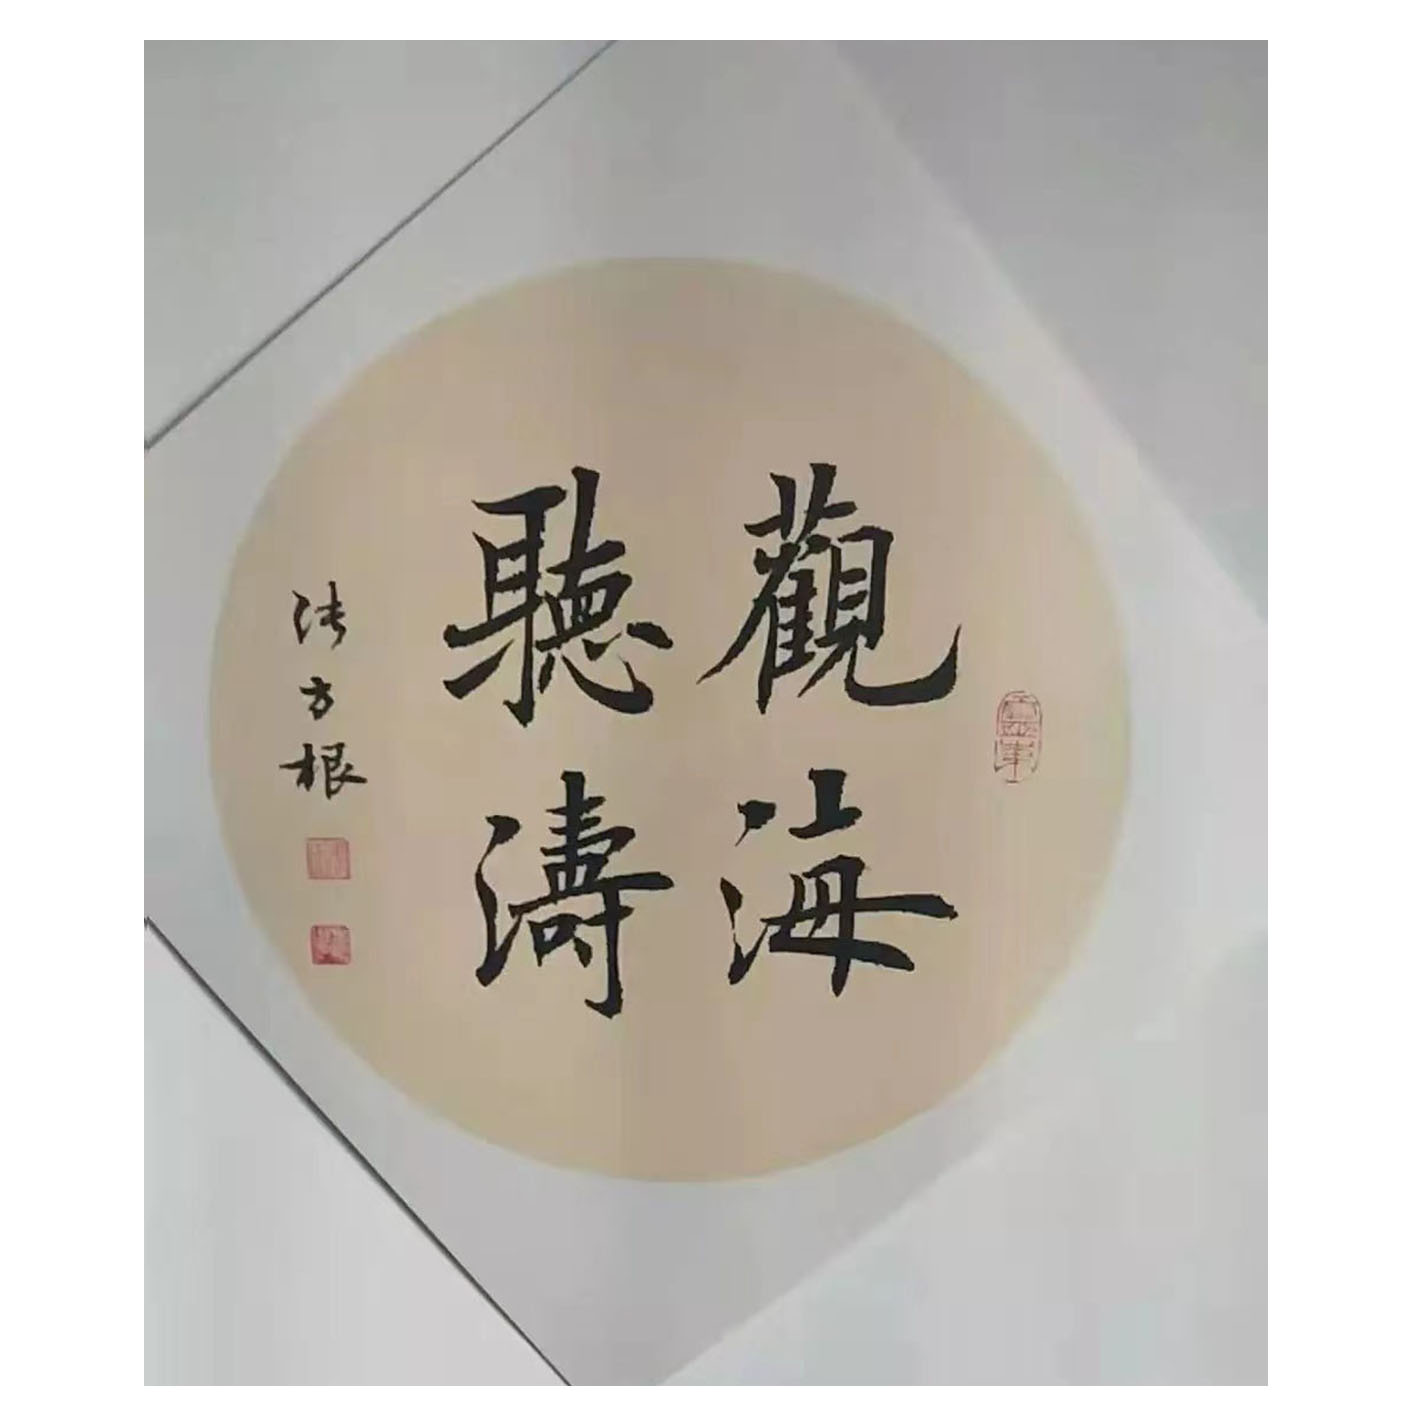 觀海
聽濤
張方根